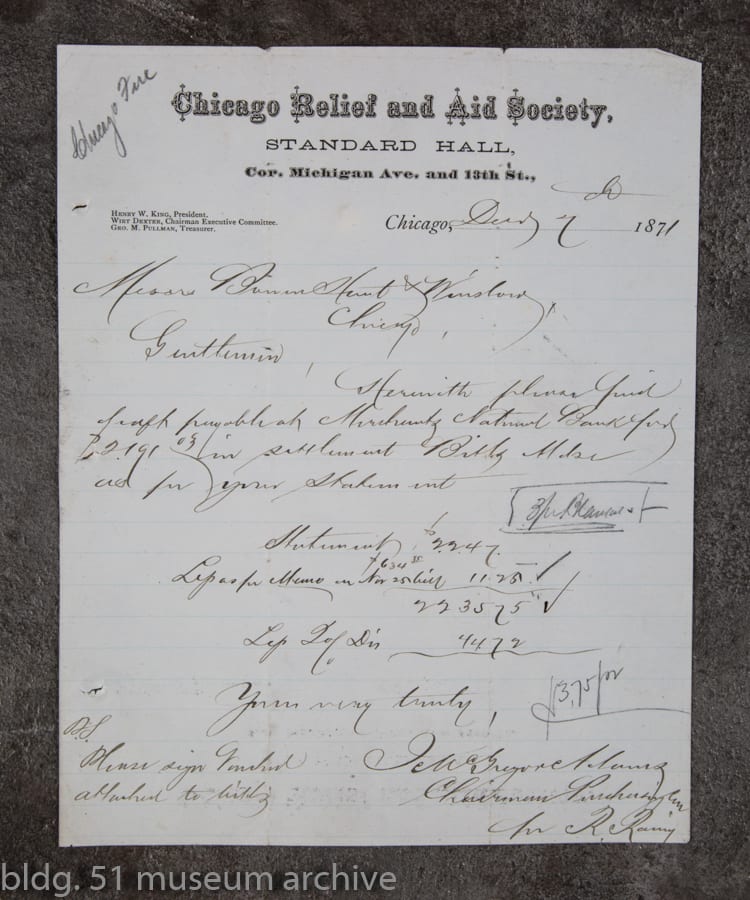 Chicago Fire
Chicago Relief and Aid Society,
STANDARD HALL,
Cor. Michigan Ave. and 13th St.,
HENRY W. KING, President.
WIRT DEXTER, Chairman Executive Committee.
GEO. M. PULLMAN, Treasurer.
Chicago, 7 1871
Messrs Bowen Hunt & Winslow
Chicago,
Gentlemen,
Herewith please find
draft payable at Merchants National Bank for
$2.191 03 in settlement Mdse
as per your Statement
Statement $2247.
Less as per Memo on Nov 25 bill 11.25
2235 75
Less 2% Dis 44 72
Yours very truly,
13,75 for
P.S.
Please sign
attached to bills
J McGregor Adams
Chairman
per R.
bldg. 51 museum archive